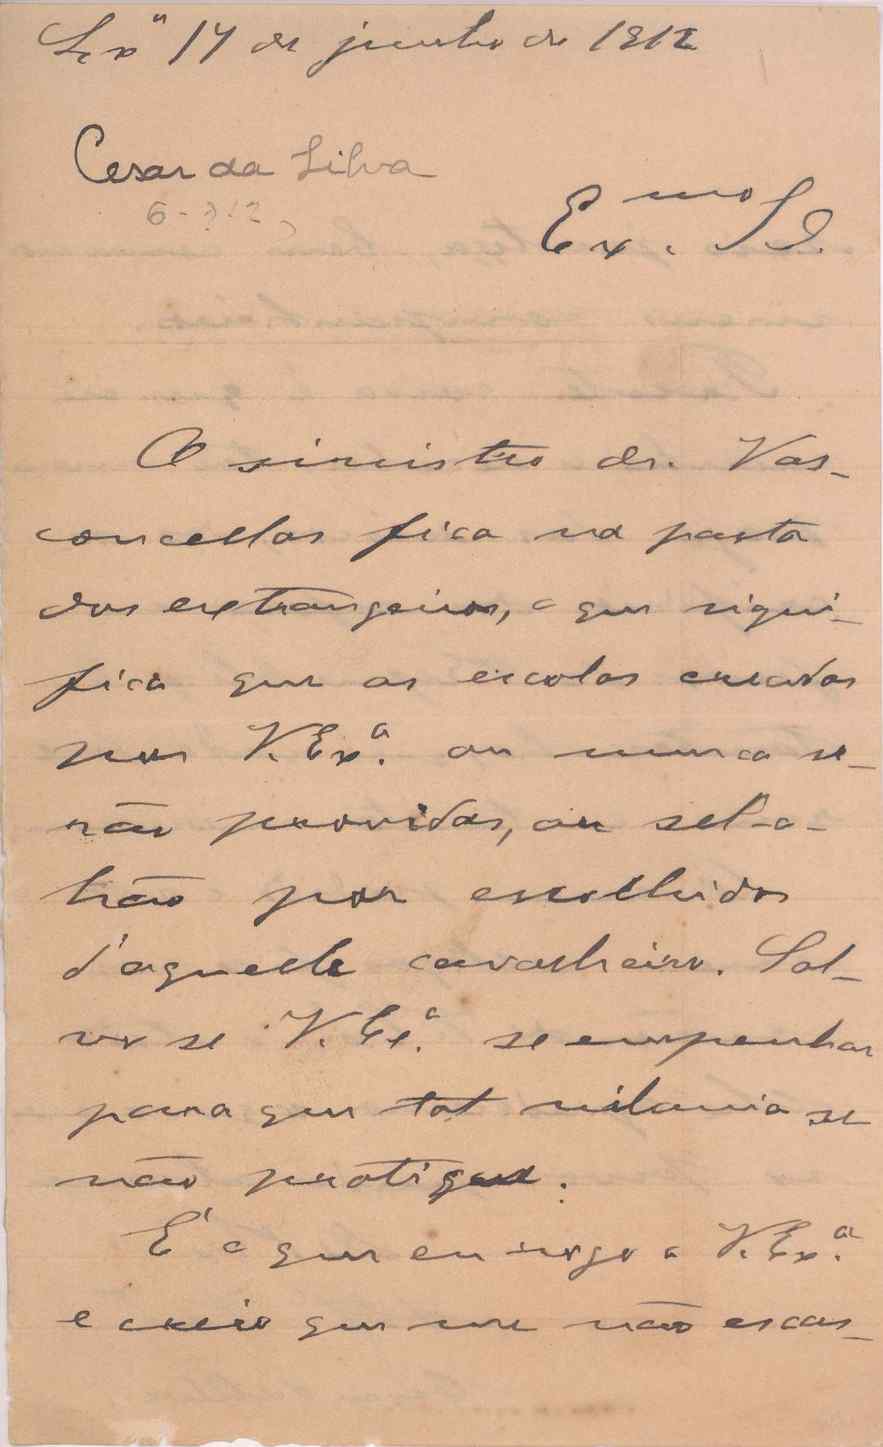 Lxª 17 de junho de 1912
Cesar da Silva
Ex.mo Sr.
O sinistro dr. Vas-
concellos fica na pasta
dos extrangeiros, o que signi-
fica que as escolas creadas
por V. Exª. ou nunca se-
rão providas, ou sel-o-
hão por escolhidos
d'aquelle cavalheiro. Sal-
vo se V. Exª. se empenhar
para que tal vilania se
não pratique.
É o que eu rogo a V. Exª.
e creio que me não escas-